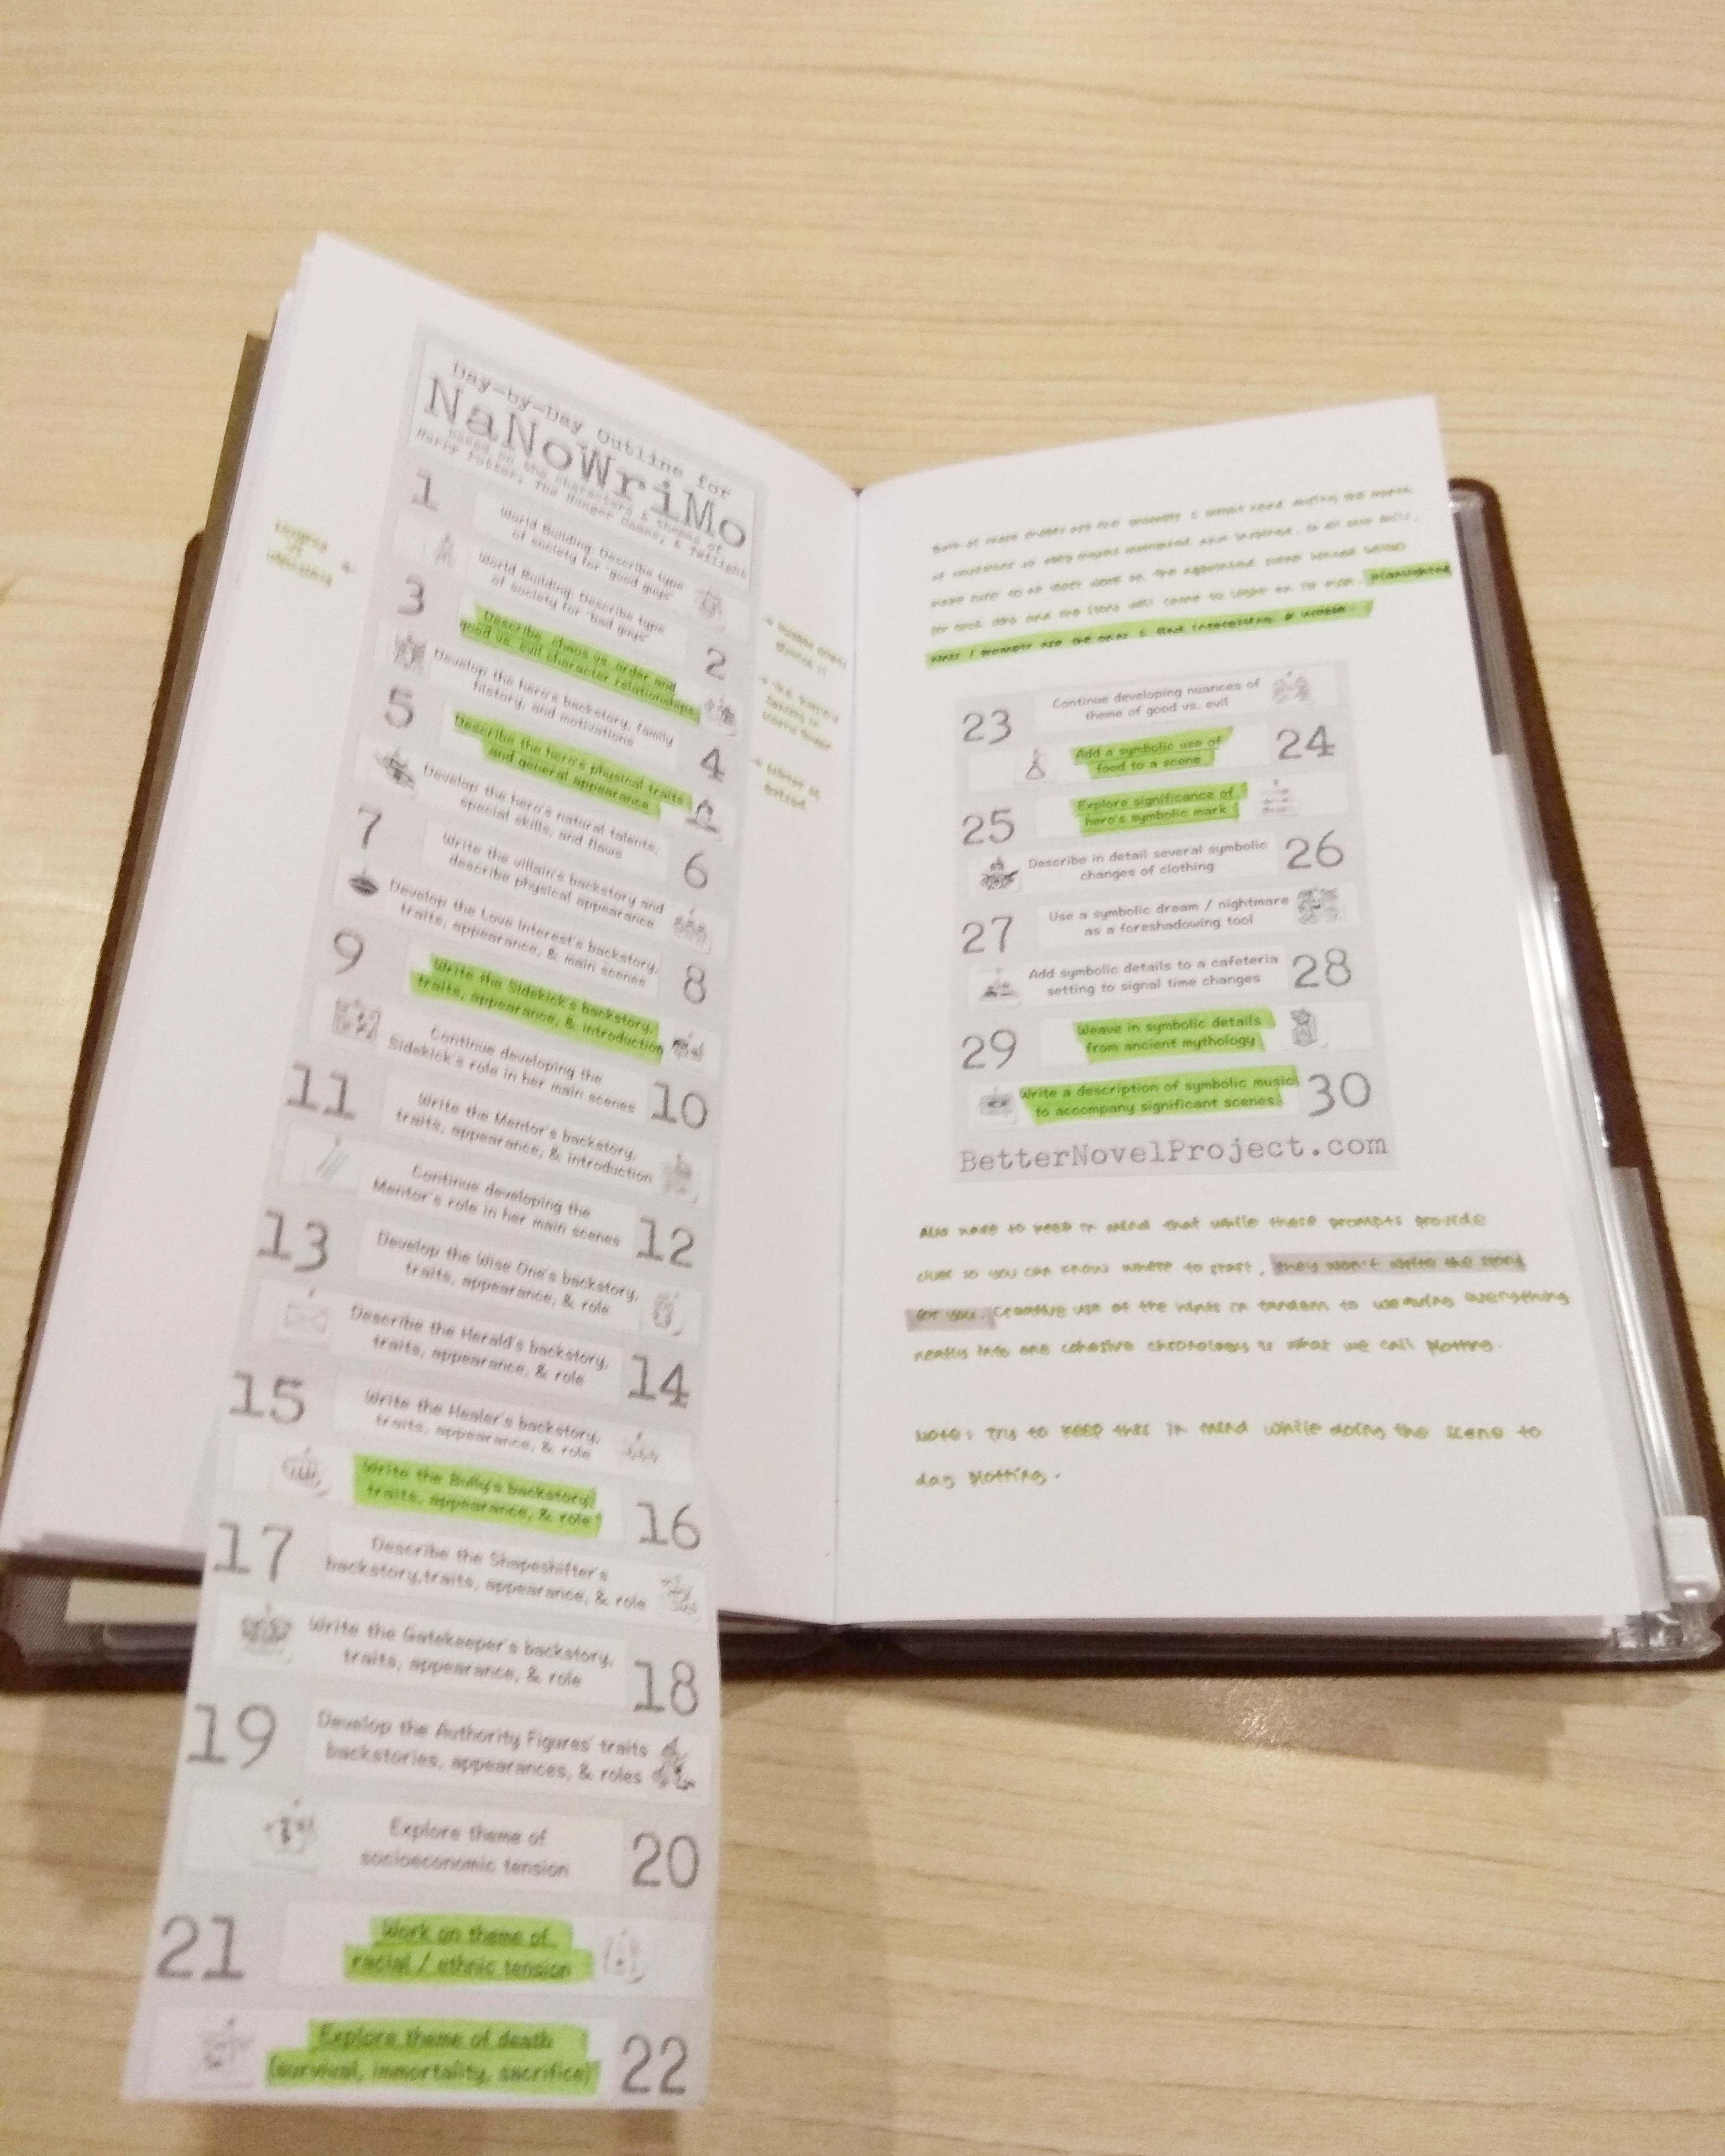 Day-by-Day Outline for
NaNoWriMo
based on the characters & themes of
Harry Potter, The Hunger Games, & Twilight
1
World Building: Describe type
of society for "good guys"
World Building: Describe type
of society for "bad guys"
2
3
Describe chaos vs. order and
good vs. evil character relationships
Develop the hero's backstory, family
history, and motivations
4
5
Describe the hero's physical traits
and general appearance
Develop the hero's natural talents,
special skills, and flaws
6
7
Write the villain's backstory and
describe physical appearance
Develop the Love Interest's backstory,
traits, appearance, & main scenes
8
9
Write the Sidekick's backstory,
traits, appearance, & introduction
Continue developing the
Sidekick's role in her main scenes
10
11
Write the Mentor's backstory,
traits, appearance, & introduction
Continue developing the
Mentor's role in her main scenes
12
13
Develop the Wise One's backstory,
traits, appearance, & role
Describe the Herald's backstory,
traits, appearance, & role
14
15
Write the Healer's backstory,
traits, appearance, & role
Write the Bully's backstory,
traits, appearance, & role
16
17
Describe the Shapeshifter's
backstory,traits, appearance, & role
Write the Gatekeeper's backstory,
traits, appearance, & role
18
19
Develop the Authority Figures' traits
backstories, appearances, & roles
Explore theme of
socioeconomic tension
20
21
Work on theme of
racial / ethnic tension
Explore theme of death
(survival, immortality, sacrifice)
22
Both of these sheets are the prompts I might need during the month
of November to keep myself motivated and inspired. to
make sure to at least work on the appointed scene
for each day and the story will come to light on its own. Highlighted
hints / prompts are the ones I find interesting & usable.
23
Continue developing nuances of
theme of good vs. evil
Add a symbolic use of
food to a scene
24
25
Explore significance of
hero's symbolic mark
Describe in detail several symbolic
changes of clothing
26
27
Use a symbolic dream / nightmare
as a foreshadowing tool
Add symbolic details to a cafeteria
setting to signal time changes
28
29
Weave in symbolic details
from ancient mythology
Write a description of symbolic music
to accompany significant scenes
30
BetterNovelProject.com
Also have to keep in mind that while these prompts provide
clues so you can know where to start, they won't write the story
for you. Creative use of the hints in tandem to weaving everything
neatly into one cohesive chronology is what we call plotting.
Note: Try to keep this in mind while doing the scene to
day plotting.